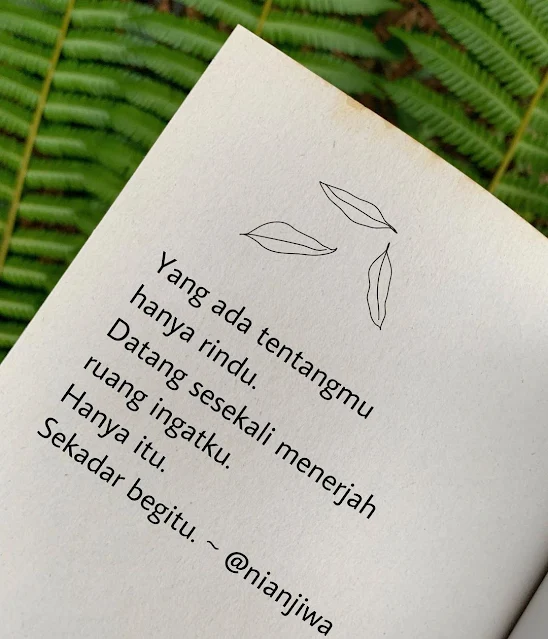 Yang ada tentangmu
hanya rindu.
Datang sesekali menerjah
ruang ingatku.
Hanya itu.
Sekadar begitu. ~ @nianjiwa